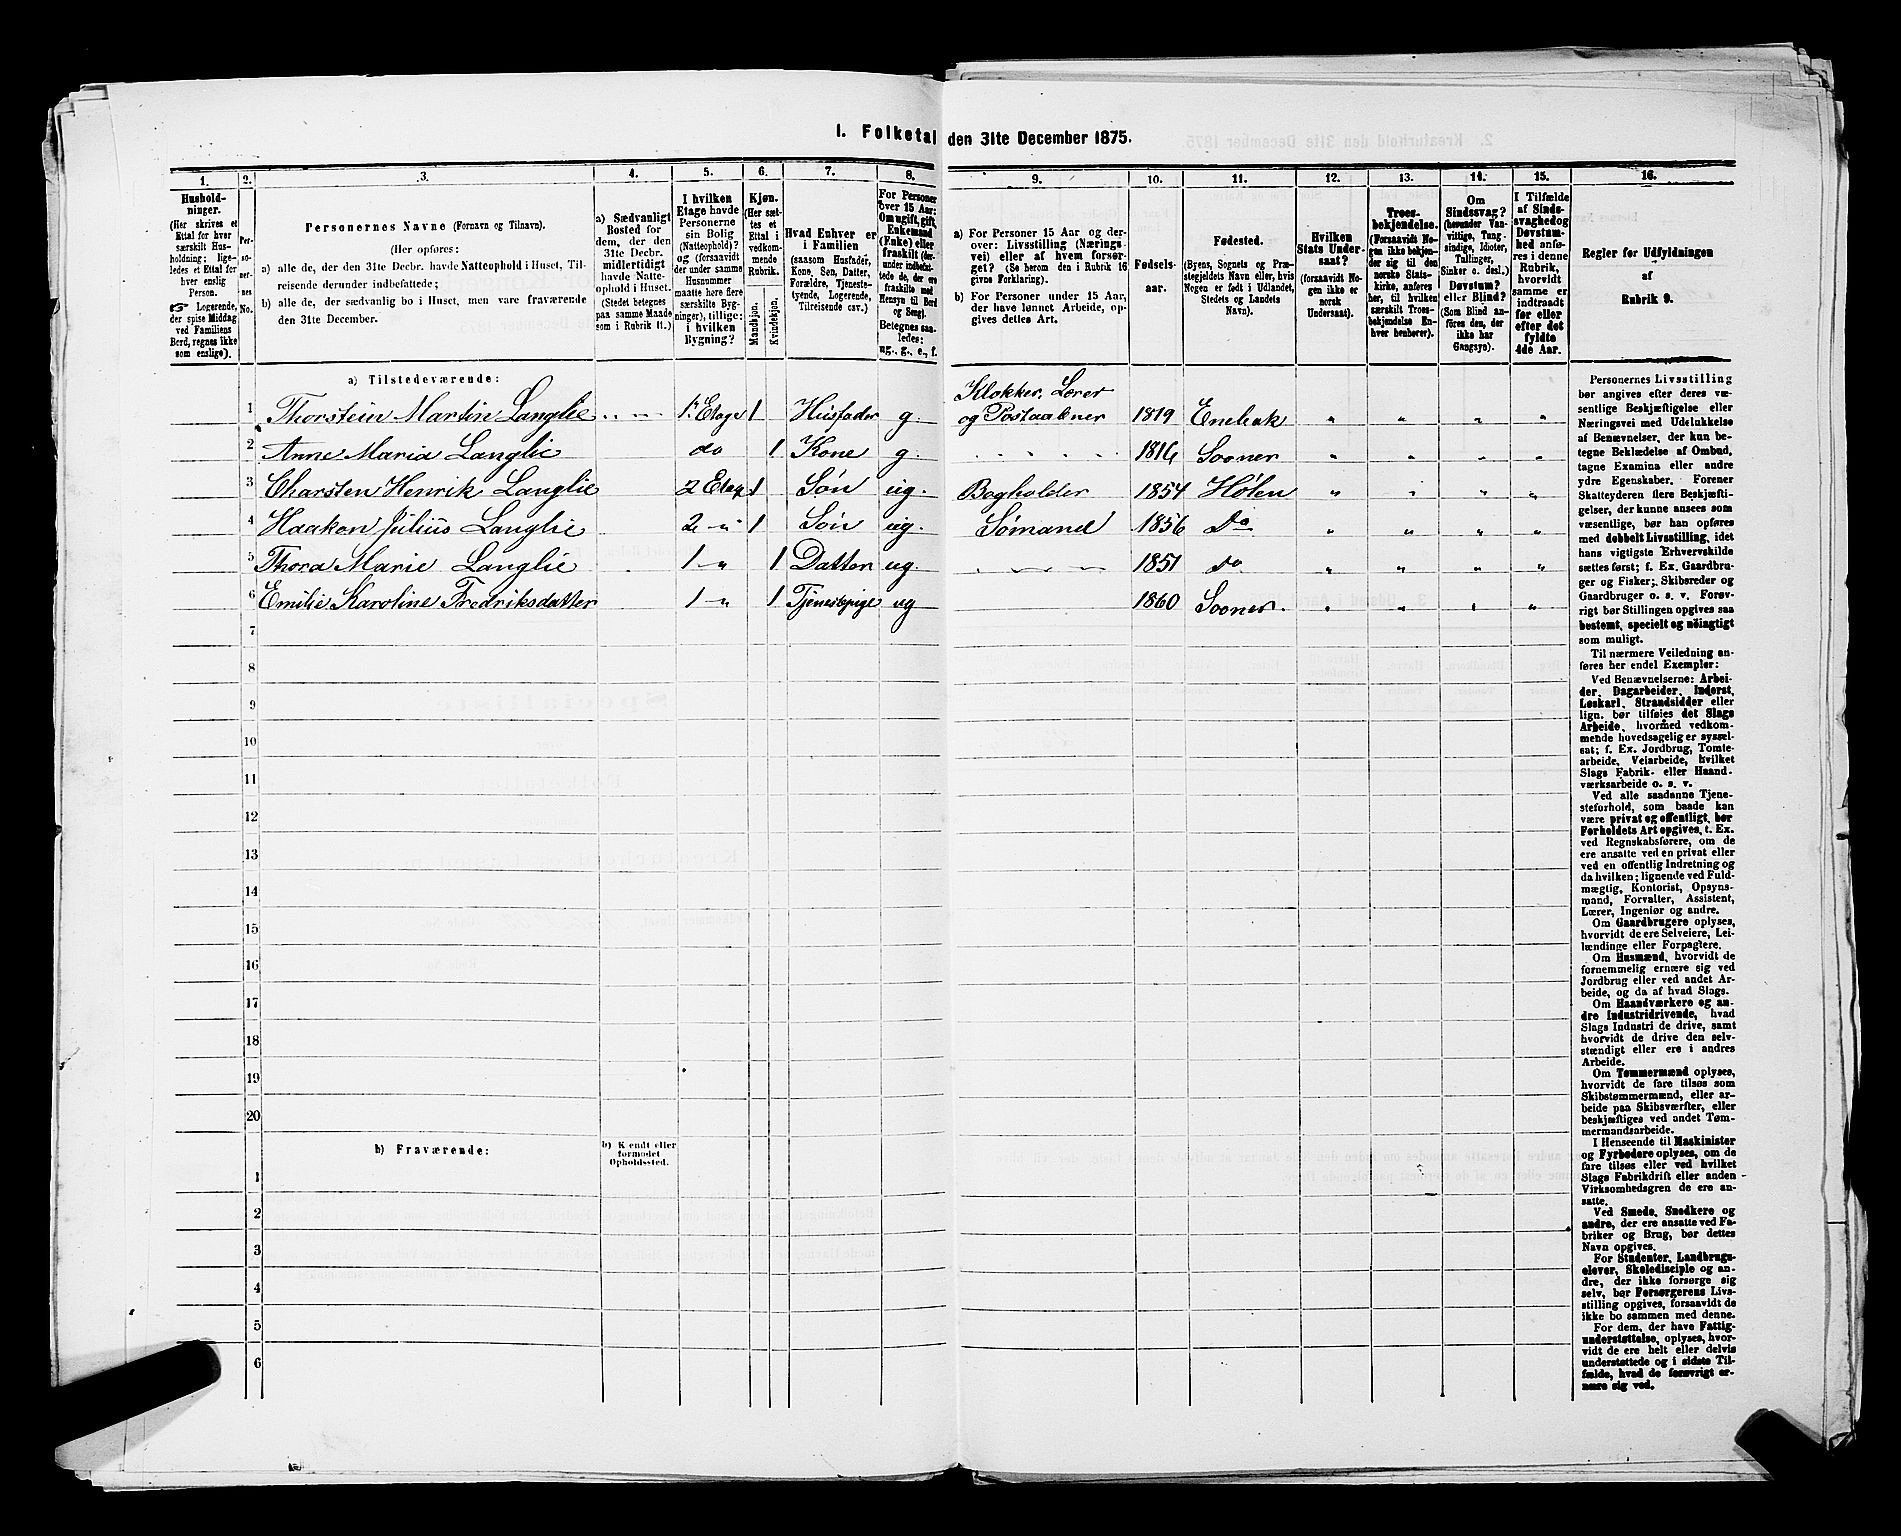 I. Folketal den 31te December 1875.
1. 2. 3. 4. 5. 6. 7. 8. 9. 10. 11. 12. 13. 14. 15. 16.
Hushold-
ninger.
(Her skrives et
Ettal for hver
særskilt Hus-
holdning; lige-
ledes et Ettal for
hver enslig
Person.
☞ Logerende,
der spise Middag
ved Familiens
Bord, regnes ikke
som enslige).
Per-
soner-
nes
No.
Personernes Navne (Fornavn og Tilnavn).
(Her opføres:
a) alle de, der den 31te Decbr. havde Natteophold i Huset, Til-
reisende derunder indbefattede;
b) alle de, der sædvanlig bo i Huset, men vare fraværende
den 31te December.
a) Sædvanligt
Bosted for
dem, der den
31te Decbr.
midlertidigt
havde Natte-
ophold i Huset.
(Stedet betegnes
paa samme Maade
som i Rubrik 11.)
I hvilken
Etage havde
Personerne
sin Bolig
(Natteophold)?
og (forsaavidt
der under samme
Husnummer
maatte høre flere
særskilte Byg-
ninger), tillige:
i hvilken
Bygning?
Kjøn.
(Her sæt-
tes et
Ettal i
vedkom-
mende
Rubrik.
Mandkjøn.
Kvindekjøn.
Hvad Enhver er
i Familien
(saasom Husfader,
Kone, Søn, Datter,
Forældre, Tjeneste-
tyende, Logerende,
Tilreisende osv.)
For Personer
over 15 Aar:
Om ugift, gift,
Enkemand
(Enke) eller
fraskilt (der-
under indbefat-
tede de, der ere
fraskilte med
Hensyn til Bord
og Seng).
Betegnes saa-
ledes:
ug., g., e., f.
a) For Personer 15 Aar og der-
over: Livsstilling (Nærings-
vei) eller af hvem forsør-
get? (Se herom den i Rubrik 16
givne Forklaring).
b) For Personer under 15 Aar,
der have lønnet Arbeide, op-
gives dettes Art.
Fødsels-
aar.
Fødested.
(Byens, Sognets og Præ-
stegjeldets Navn eller, hvis
Nogen er født i Udlandet,
Stedets og Landets
Navn).
Hvilken
Stats Under-
saat?
(forsaavidt No-
gen ikke er
norsk
Undersaat).
Troes-
bekjendelse.
(Forsaavidt No-
gen ikke bekjen-
der sig til den
norske Stats-
kirke, anføres
her, til hvilken
særskilt Troes-
bekjendelse En-
hver henhører).
Om
Sindssvag?
(herunder Van-
vittige, Tung-
sindige, Idioter,
Tullinger,
Sinker o. desl.)
Døvstum?
eller Blind?
(Som Blind an-
føres den, der
ikke har
Gangsyn).
I Tilfælde
af Sinds-
svaghed og
Døvstum-
hed anfø-
res i denne
Rubrik,
hvorvidt
samme er
indtraadt
før eller
efter det
fyldte
4de Aar.
Regler før Udfyldningen
af
Rubrik 9.
a) Tilstedeværende:
Klokker, Lærer
1 Thorstein Martin Langlie 1. Etage 1 Husfader g. og Postaabner 1819 Enebak " " " "
2 Anne Maria Langlie do 1 Kone g. 1816 Sooner " " " "
3 Charsten Henrik Langlie 2 Etage 1 Søn ug. Bogholder 1854 Hølen " " " "
4 Haakon Julius Langlie 2 - " 1 Søn ug. Sømand 1856 do " " " "
5 Thora Marie Langlie 1 - " 1 Datter ug. 1851 do " " " "
6 Emilie Karoline Fredriksdatter 1 - " 1 Tjenestepige ug 1860 Sooner. " " " "
7
8
9
10
11
12
13
14
15
16
17
18
19
20
b) Fraværende:
b) Kjendt eller
formodet
Opholdssted.
1
2
3
4
5
6
Personernes Livsstilling
bør angives efter deres væ-
sentlige Beskjæftigelse eller
Næringsvei med Udelukkelse
af Benævnelser, der kun be-
tegne Beklædelse af Ombud,
tagne Examina eller andre
ydre Egenskaber. Forener
Skatteyderen flere Beskjæfti-
gelser, der kunne ansees som
væsentlige, bør han opføres
med dobbelt Livsstilling, idet
hans vigtigste Erhvervskilde
sættes først; f. Ex. Gaardbru-
ger og Fisker; Skibsreder og
Gaardbruger o. s. v. Forøv-
rigt bør Stillingen opgives saa
bestemt, specielt og nøiagtigt
som muligt.
Til nærmere Veiledning an-
føres her endel Exempler:
Ved Benævnelserne: Arbei-
der, Dagarbeider, Inderst,
Løskarl, Strandsidder eller
lign. bør tilføies det Slags
Arbeide, hvormed vedkom-
mende hovedsagelig er syssel-
sat; f. Ex. Jordbrug, Tomte-
arbeide, Veiarbeide, hvilket
Slags Fabrik- eller Haand-
værksarbeide o. s. v.
Ved alle saadanne Tjene-
steforhold, som baade kan
være privat og offentligt, bør
Forholdets Art opgives, t. Ex.
ved Regnskabsførere, om de
ere ansatte ved en privat eller
ved en offentlig Indretning og
da hvilken; lignende ved Fuld-
mægtig, Kontorist, Opsyns-
mand, Forvalter, Assistent,
Lærer, Ingeniør og andre.
Om Gaardbrugere oplyses,
hvorvidt de ere Selveiere, Lei-
lændinge eller Forpagtere.
Om Husmænd, hvorvidt de
fornemmelig ernære sig ved
Jordbrug eller ved andet Ar-
beide, og da af hvad Slags.
Om Haandværkere og an-
dre Industridrivende, hvad
Slags Industri de drive, samt
hvorvidt de drive den selv-
stændigt eller ere i andres
Arbeide.
Om Tømmermænd oplyses,
hvorvidt de fare tilsøs som
Skibstømmermænd, eller ar-
beide paa Skibsværfter, eller
beskjæftiges ved andet Tøm-
mermandsarbeide.
I Henseende til Maskinister
og Fyrbødere oplyses, om de
fare tilsøs eller ved hvilket
Slags Fabrikdrift eller anden
Virksomhedsgren de ere an-
satte.
Ved Smede, Snedkere og
andre, der ere ansatte ved Fa-
briker og Brug, bør dettes
Navn opgives.
For Studenter, Landbrugs-
elever, Skoledisciple og an-
dre, der ikke forsørge sig
selv, bør Forsørgerens Livs-
stilling opgives, forsaavidt de
ikke bo sammen med denne.
For dem, der have Fattig-
understøttelse, oplyses, hvor-
vidt de ere helt eller delvis
understøttede og i sidste Til-
fælde, hvad de forøvrigt er-
nære sig ved.